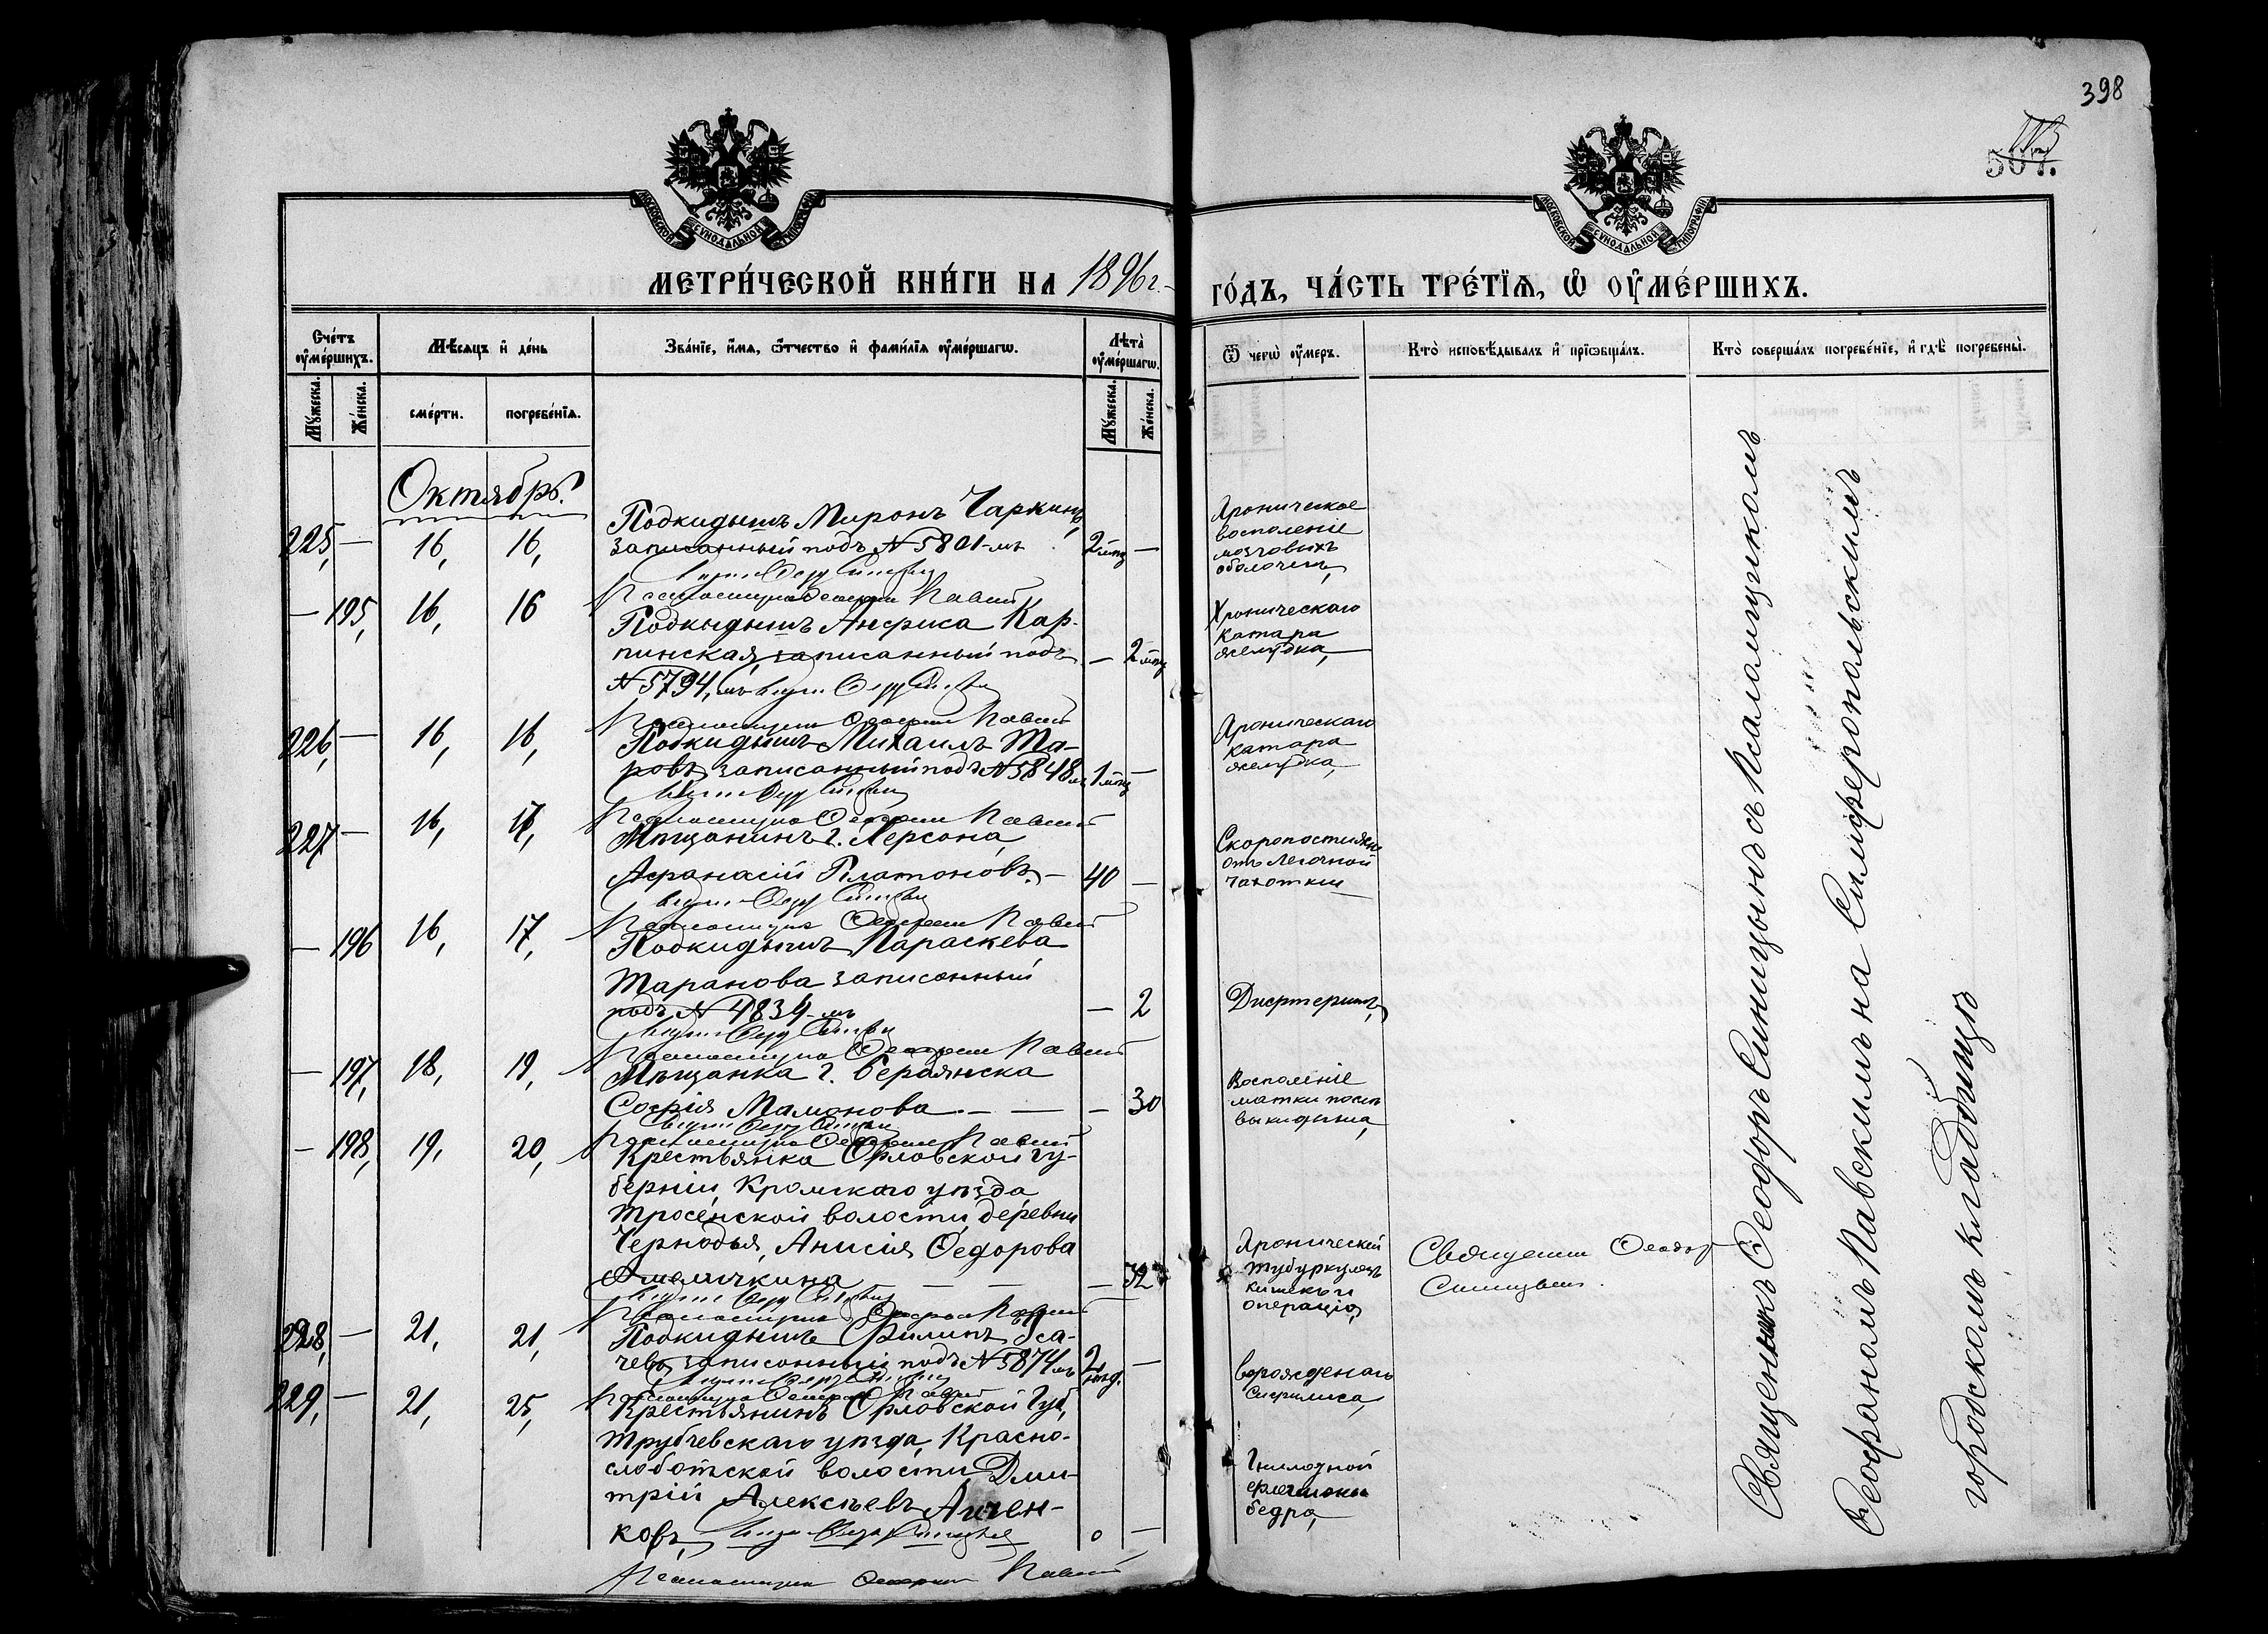 398
507.
МОСКОВСКОЙ СѴНОДАЛЬНОЙ ТИПОГРАФІИ
МОСКОВСКОЙ СѴНОДАЛЬНОЙ ТИПОГРАФІИ
МЕТРИ́ЧЕСКОЙ КНИ́ГИ НА 1896 г.
ГО́ДЪ, ЧА́СТЬ ТРЕ́ТЇѦ, Ѡ ОУ҆МЕ́РШИХЪ.
Сче́тъ оу҆ме́ршихъ.
Мꙋ́жеска.
Же́нска.
Мѣ́сѧцъ и҆ де́нь
сме́рти.
погребе́нїѧ.
Зва́нїе, и҆́мѧ, ѻ҆́тчество и҆ фами́лїѧ оу҆ме́ршагѡ.
Лѣ́та оу҆ме́ршагѡ.
Мꙋ́жеска.
Же́нска.
Ѿ чегѡ̀ оу҆́меръ.
Кто̀ и҆сповѣ́дывалъ и҆ прїѡбща́лъ.
Кто̀ соверша́лъ погребе́нїе, и҆ гдѣ̀ погребены̀.
Октябрь.
225, — 16, 16,
Подкидышъ Миронъ Чаркинъ,
записанный подъ N 5801-мъ
2 мѣц —
Хроническое
восполеніе
мозговыхъ
оболочекъ,
— 195, 16, 16
Подкидышъ Анфиса Кар-
пинская, записанный подъ
N 5794, мъ
— 2 мѣц
Хроническаго
катара
желудка,
226, — 16, 16,
Подкидышъ Михаилъ Та-
ровъ, записанный подъ N 5848 мъ
1 мѣц —
Хроническаго
катара
желудка,
227 — 16, 17,
Мѣщанинъ г. Херсона,
Афанасій Платоновъ, —
40 —
Скоропостижно
отъ легочной
чахотки
— 196 16, 17,
Подкидышъ Параскева
Таранова записанный
подъ N 4834-мъ
— 2
Дифтеритъ,
— 197, 18, 19,
Мѣщанка г. Бердянска
Софія Мамонова. — —
— 30
Восполеніе
матки послѣ
выкидыша,
— 198, 19, 20,
Крестьянка Орловской гу-
берніи, Кромскаго уѣзда,
Тросенской волости, деревни
Чернодья, Анисія Федорова
— 32
Хроническій
тубуркулезъ
кишекъ и
операція,
Священни Ѳеодор
Синицын.
228, — 21, 21,
Подкидышъ Филипъ Уса-
чевъ, записанный подъ N 5874 мъ
2 нед. —
Врожденаго
сифилиса,
229, — 21, 25,
Крестьянинъ Орловской Губ,
Трубчевскаго уѣзда, Красно-
слободской волости, Дми-
трій Алексѣевъ
ковъ,
Гнилодной
флегмоны
бедра,
Священникъ Ѳеодоръ Синицынъ съ Псаломщикомъ
Ѳеофаномъ Павскимъ на Симферопольскимъ
городскомъ кладбищѣ